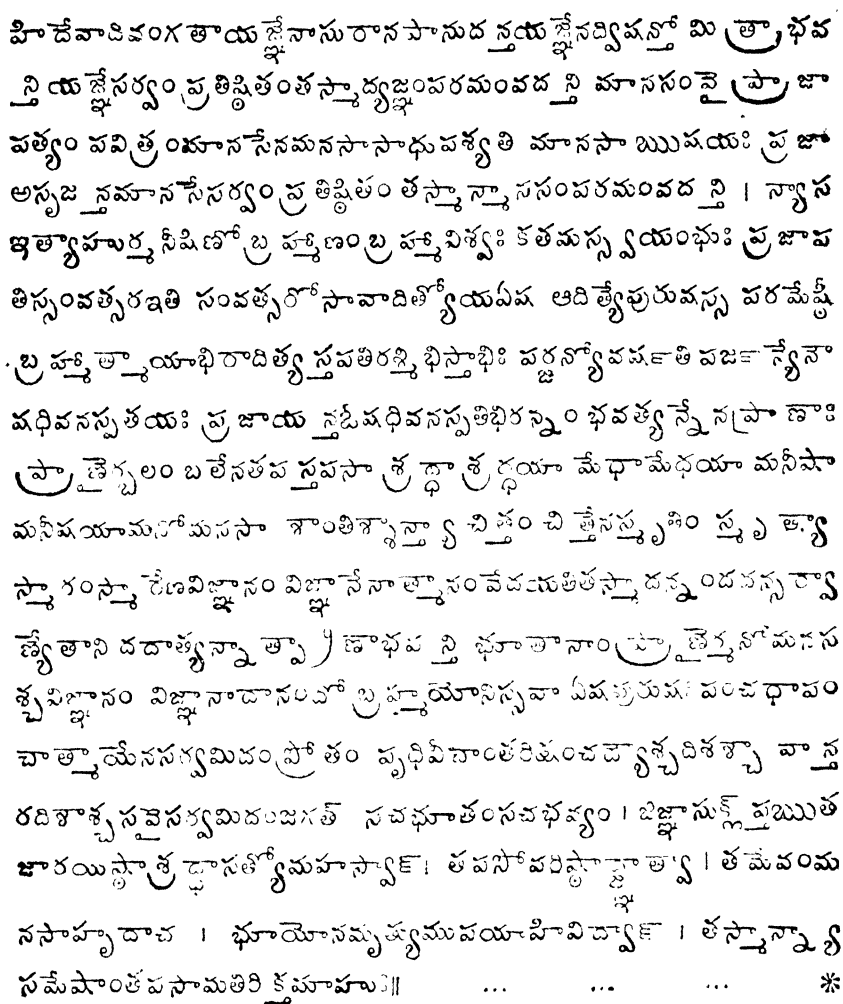 హి దేవాదివంగ తాయజ్ఞేనాసురానపానుద న్తయజ్ఞేనద్విషన్తో మి త్రాభవ
న్తి యజ్ఞేసర్వం ప్రతిష్ఠితంతస్మాద్యజ్ఞంపరమంవద న్తి మానసంవై ప్రాజా
పత్యం పవిత్రంమానసేనమనసాసాధుపశ్యతి మానసా ఋషయః ప్రజా
అసృజ న్తమానసేసర్వం ప్రతిష్ఠితం తస్మాన్మాససంపరమంవద న్తి । న్యాస
ఇత్యాహుర్మనీషిణో బ్రహ్మాణం బ్రహ్మావిశ్వః కతమస్స్వయంభుః ప్రజాప
తిస్సంవత్సరఇతి సంవత్సరోసావాదిత్యోయఏష ఆదిత్యేపురుషస్స పరమేష్ఠీ
బ్రహ్మాత్మాయాభిరాదిత్య స్తపతిరశ్మిభిస్తాభిః పర్జన్యోవర్షతి పర్జన్యేనౌ
షధివనస్పతయః ప్రజాయ న్తఓషధివనస్పతిభిరన్నం భవత్యన్నేనప్రాణాః
ప్రాణైర్బలం బలేనతప స్తపసా శ్రద్ధా శ్రద్ధయా మేధామేధయా మనీషా
మనీషయామనోమనసా శాంతిశ్శాన్త్యా చిత్తం చిత్తేనస్మృతిం స్మృత్యా
స్మాగంస్మారేణవిజ్ఞానం విజ్ఞానేనాత్మానంవేదయతితస్మాదన్నందదన్సర్వా
ణ్యేతాని దదాత్యన్నాత్ప్రాణాభవ న్తి భూతానాం ప్రాణైర్మనోమనస
శ్చవిజ్ఞానం విజ్ఞానాదానందో బ్రహ్మయోనిస్సవా ఏషపురుషః పంచధాపం
చాత్మాయేనసర్వమిదం ప్రోతం పృథివీచాంతరిక్షంచద్యౌశ్చదిశశ్చా వాన్త
రదిశాశ్చసవైసర్వమిదంజగత్ సచభూతంసచభవ్యం । జిజ్ఞాసుక్లృప్తఋత
జారయిష్ఠాశ్రద్ధాసత్యోమహస్వాన్। తపసోవరిష్ఠాజ్జ్ఞాత్వా । తమేవంమ
నసాహృదాచ । భూయోనమృత్యుముపయాహివిద్వాన్ । తస్మాన్న్యా
సమేషాంతపసామతిరి క్తమాహుః॥ ... ... ... *